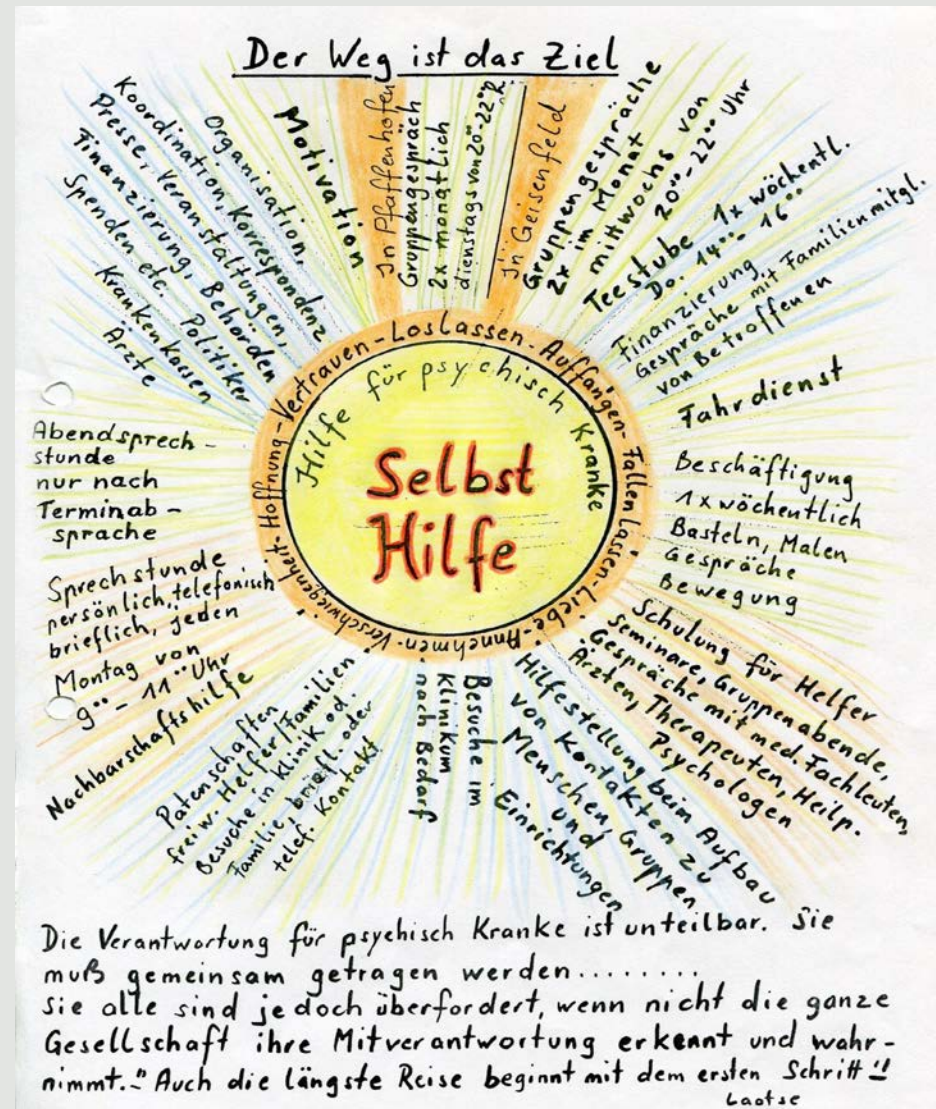 Der Weg ist das Ziel
Selbst
Hilfe
Hilfe für psychisch Kranke
Hoffnung-Vertrauen-Loslassen-Auffangen-Fallen lassen-Liebe-Annehmen-Verschwiegenheit-
Motivation
Organisation,
Koordination, Korrespondenz
Presse, Veranstaltungen,
Finanzierung, Behörden
Spenden etc. Politiker
Krankenkassen
Ärzte
In Pfaffenhofen
Gruppengespräch
2x monatlich
dienstags von 20⁰⁰-22⁰⁰
In Geisenfeld
Gruppengespräche
2x im Monat
mittwochs von
20⁰⁰-22⁰⁰ Uhr
Teestube 1x wöchentl.
Do. 14⁰⁰-16⁰⁰
Finanzierung,
Gespräche mit Familienmitgl.
von Betroffenen
Fahrdienst
Beschäftigung
1x wöchentlich
Basteln, Malen
Gespräche
Bewegung
Schulung für Helfer
Seminare, Gruppenabende,
Gespräche mit med. Fachleuten,
Ärzten, Therapeuten, Heilp.
Psychologen
Hilfestellung beim Aufbau
von Kontakten zu
Menschen, Gruppen
und
Einrichtungen
Besuche im
Klinikum
nach Bedarf
Patenschaften
freiw. Helfer/Familien
Besuche in Klinik od.
Familie, briefl. oder
telef. Kontakt
Nachbarschaftshilfe
Sprechstunde
persönlich, telefonisch
brieflich, jeden
Montag von
9⁰⁰-11⁰⁰ Uhr
Abendsprech-
stunde
nur nach
Terminab-
sprache
Die Verantwortung für psychisch Kranke ist unteilbar. Sie
muß gemeinsam getragen werden.........
Sie alle sind jedoch überfordert, wenn nicht die ganze
Gesellschaft ihre Mitverantwortung erkennt und wahr-
nimmt. "Auch die längste Reise beginnt mit dem ersten Schritt"!
Laotse